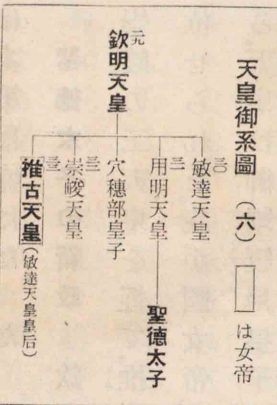 天皇御系圖(六) □は女帝
元
欽明天皇
三〇
敏達天皇
三一
用明天皇
聖德太子
穴穗部皇子
三二
崇峻天皇
三三
推古天皇(敏達天皇皇后)